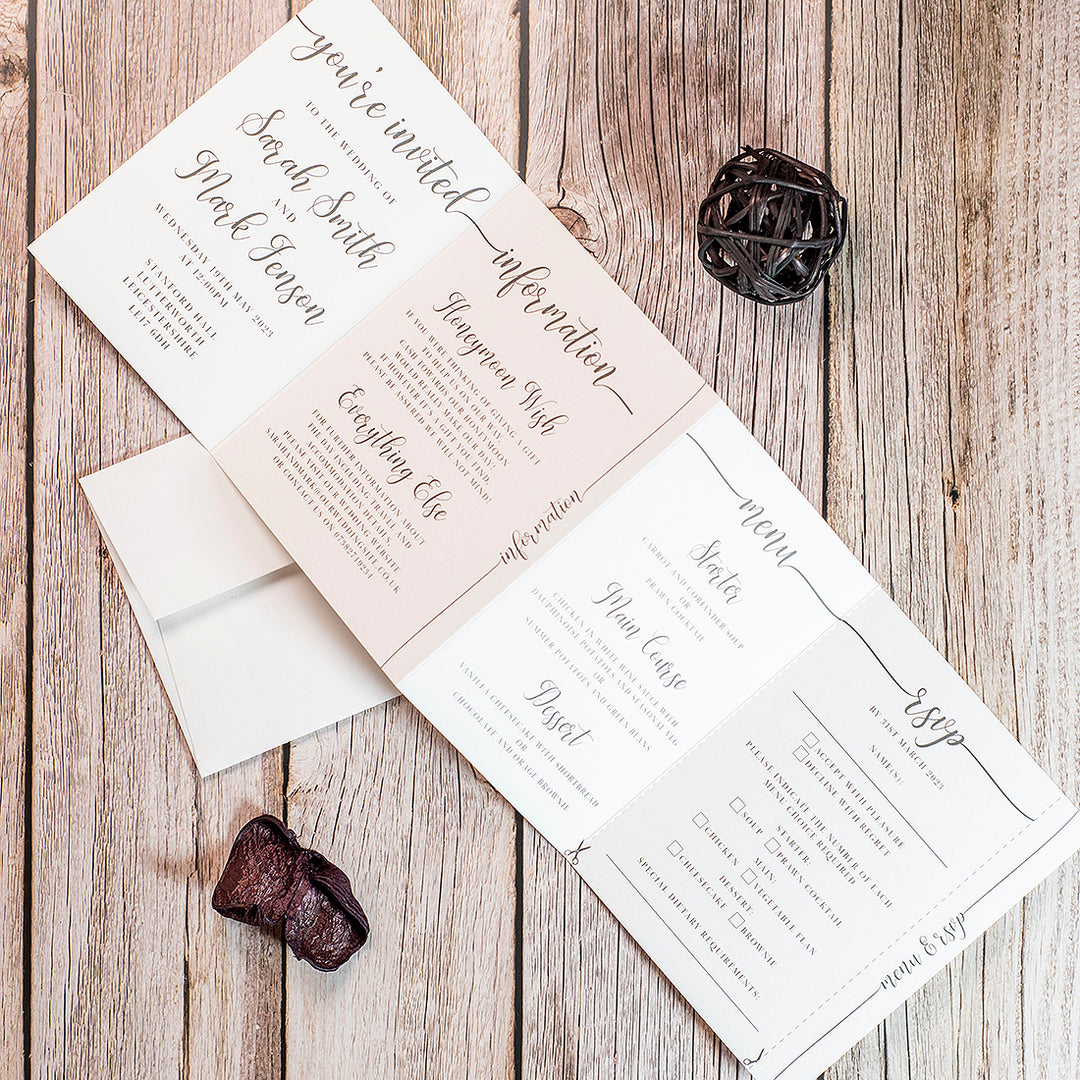 you're invited
TO THE WEDDING OF
Sarah Smith
AND
Mark Jenson
WEDNESDAY 19TH MAY 2023
AT 12:00PM
STANFORD HALL
LUTTERWORTH
LEICESTERSHIRE
LE17 6DH
information
Honeymoon Wish
IF YOU WERE THINKING OF GIVING A GIFT
TO HELP US ON OUR WAY,
CASH TOWARDS OUR HONEYMOON
WOULD REALLY MAKE OUR DAY!
IF HOWEVER IT'S A GIFT YOU FIND,
PLEASE BE ASSURED WE WILL NOT MIND!
Everything Else
FOR FURTHER INFORMATION ABOUT
THE DAY INCLUDING TRAVEL AND
ACCOMMODATION DETAILS
PLEASE VISIT OUR WEDDING WEBSITE
SARAHANDMARK@OURWEDDINGSITE.CO.UK
OR CONTACT US ON
information
menu
Starter
CARROT AND CORIANDER SOUP
OR
PRAWN COCKTAIL
Main Course
CHICKEN IN WHITE WINE SAUCE WITH
DALPHINOISE POTATOES AND SEASONAL VEG
SUMMER POTATOES AND GREEN BEANS
Dessert
VANILLA CHEESECAKE WITH SHORTBREAD
OR
CHOCOLATE AND ORAGE BROWNIE
rsvp
BY 21ST MARCH 2023
NAME(S):
ACCEPT WITH PLEASURE
DECLINE WITH REGRET
PLEASE INDICATE THE NUMBER OF EACH
MENU CHOICE REQUIRED
STARTER:
SOUP PRAWN COCKTAIL
MAIN:
CHICKEN VEGETABLE FLAN
DESSERT:
CHEESECAKE BROWNIE
SPECIAL DIETARY REQUIREMENTS:
menu & rsvp